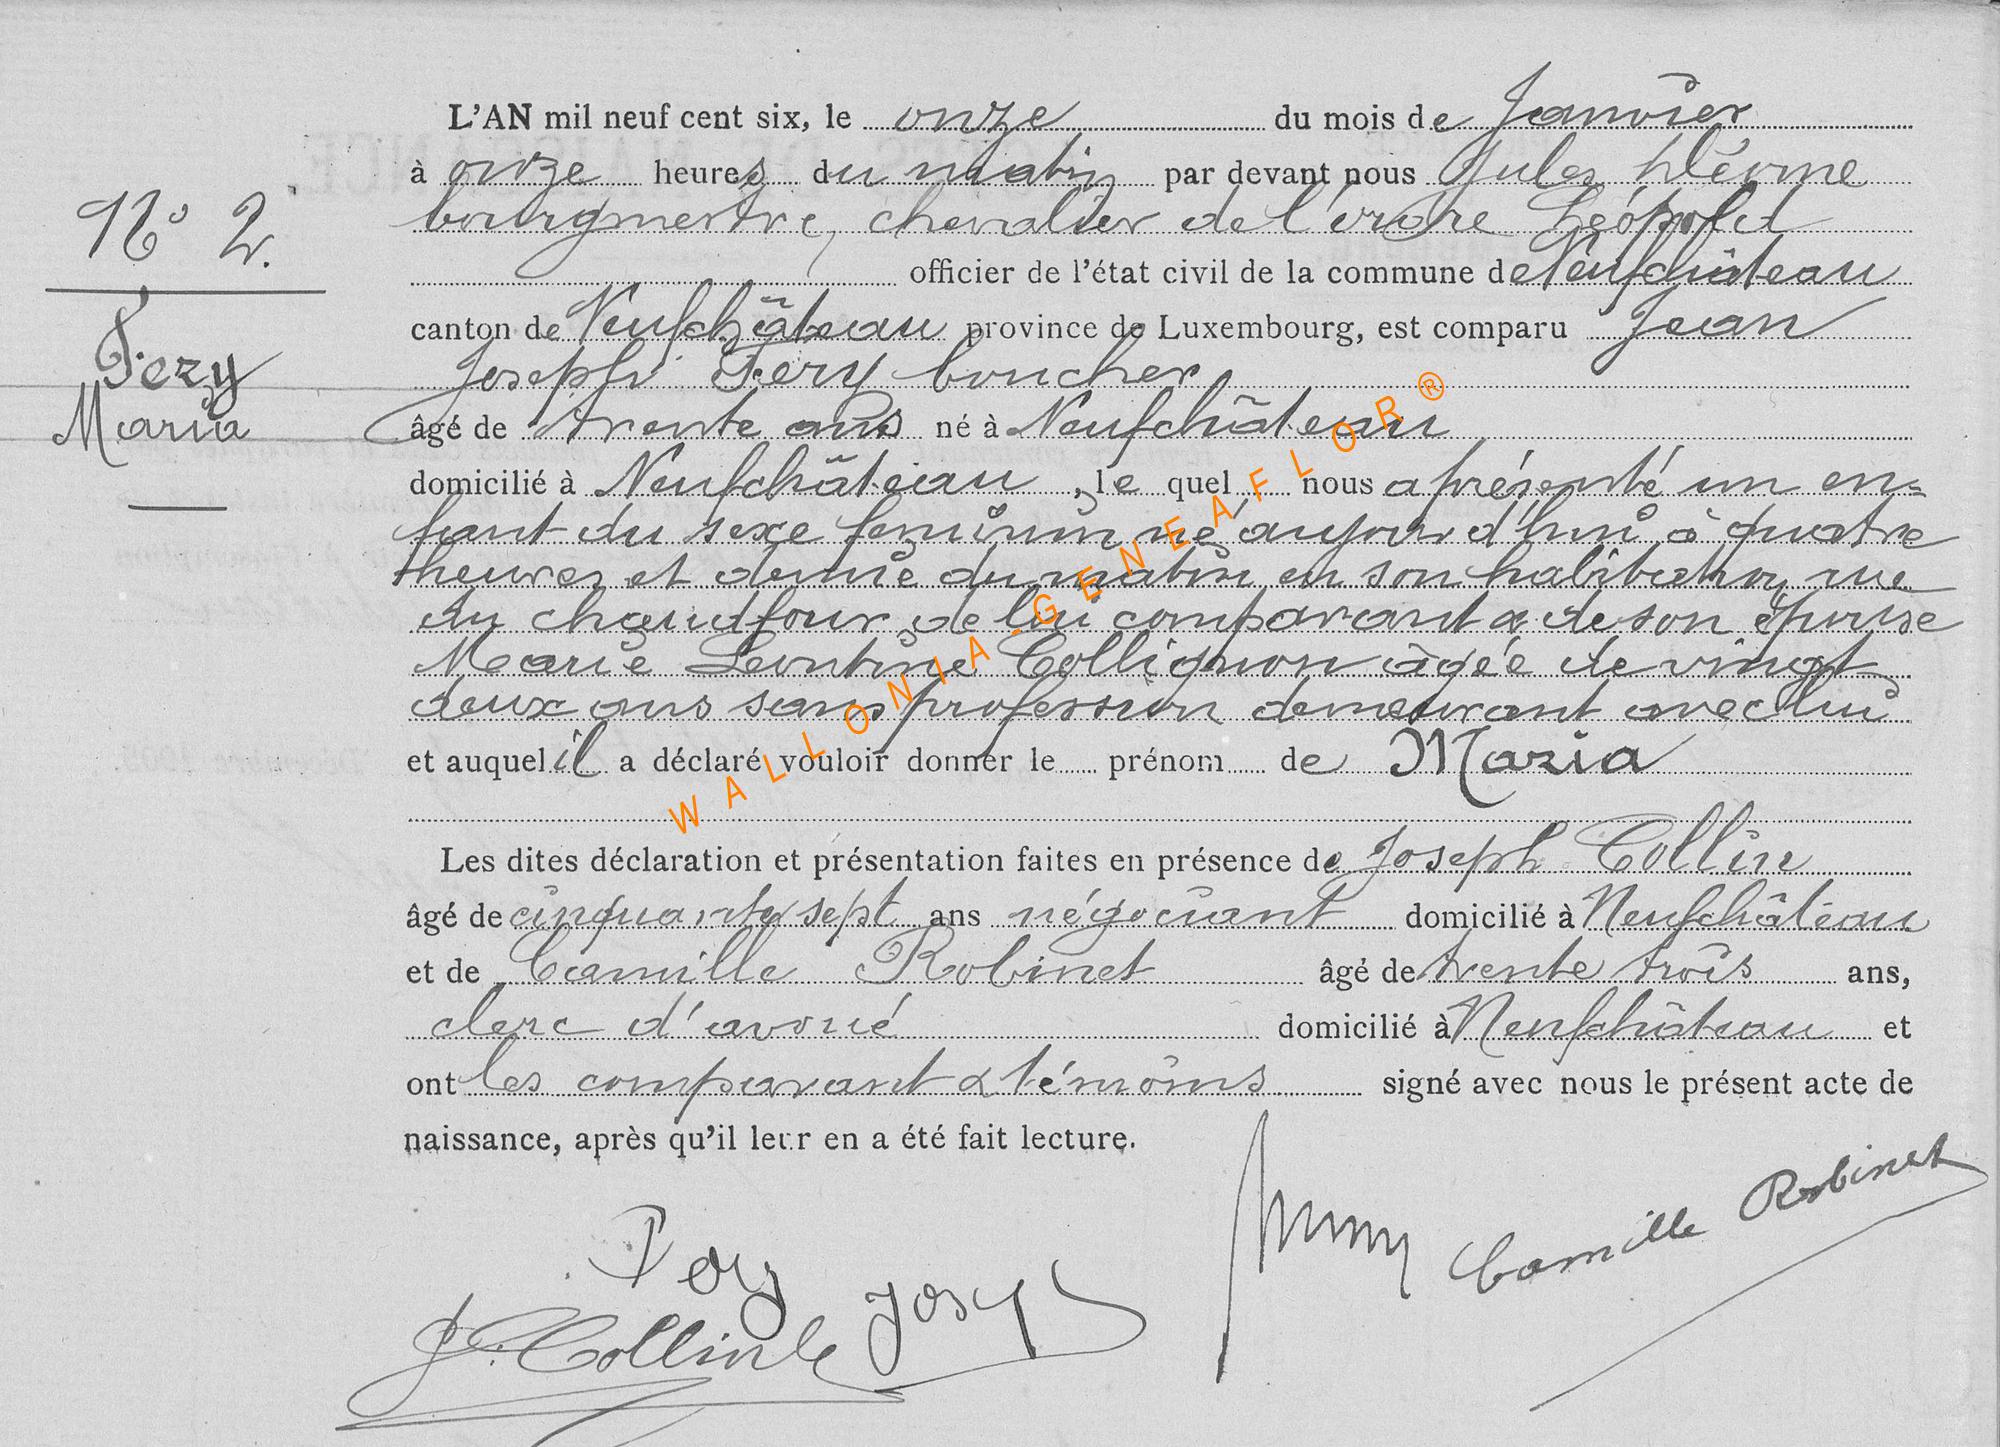 L'AN mil neuf cent six, le onze du mois de Janvier
à onze heures du matin par devant nous Jules
bourgmestre, chevalier de l'ordre Léopold
officier de l'état civil de la commune de Neufchâteau
N° 2.
canton de Neufchâteau province de Luxembourg, est comparu Jean
Joseph Fery boucher
Fery
Maria
âgé de trente ans né à Neufchâteau
domicilié à Neufchâteau, le quel nous a présenté un en-
fant du sexe feminin né aujourd'hui à quatre
heures et demie du matin en son habitation rue
du chaudfour de lui comparant & de son épouse
Marie Leontine Collignon agée de vingt
deux ans sans profession demeurant avec lui
et auquel il a déclaré vouloir donner le prénom de Maria
WALLONIA-GENEAFLOR®
Les dites déclaration et présentation faites en présence de Joseph Collin
âgé de cinquante sept ans négociant domicilié à Neufchâteau
et de Camille Robinet âgé de trente trois ans,
clerc d'avoué domicilié à Neufchâteau et
ont les comparant & témoins signé avec nous le présent acte de
naissance, après qu'il leur en a été fait lecture.
Camille Robinet
Fery Joseph